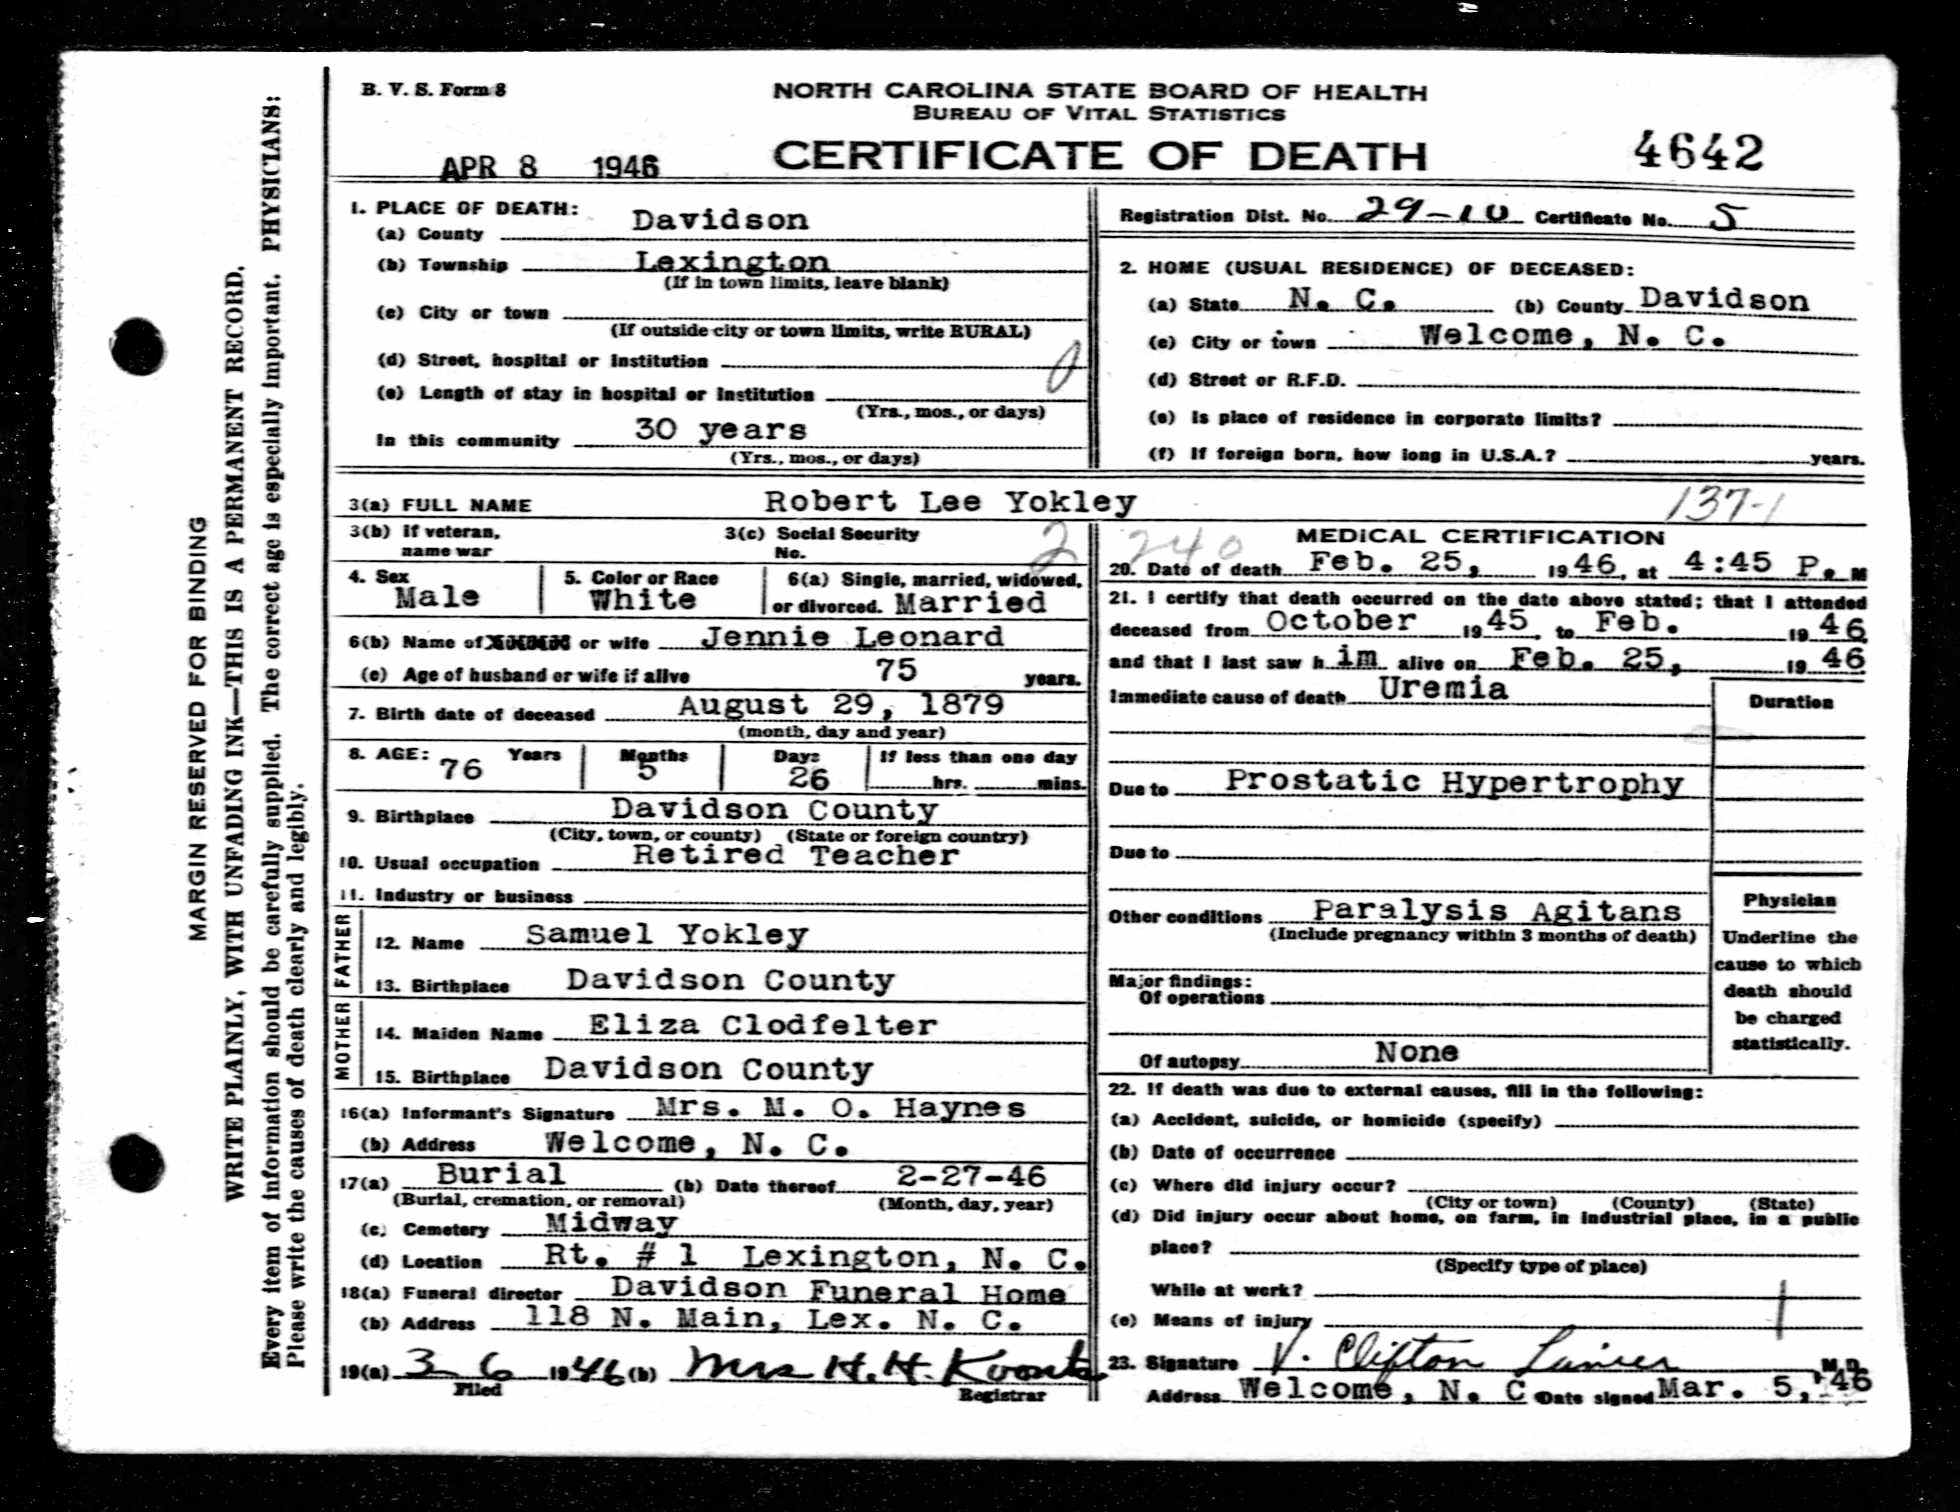 B. V. S. Form 8
NORTH CAROLINA STATE BOARD OF HEALTH
BUREAU OF VITAL STATISTICS
CERTIFICATE OF DEATH
APR 8 1946
4642
MARGIN RESERVED FOR BINDING
WRITE PLAINLY, WITH UNFADING INK—THIS IS A PERMANENT RECORD.
Every item of information should be carefully supplied. The correct age is especially important. PHYSICIANS:
Please write the causes of death clearly and legibly.
1. PLACE OF DEATH:
(a) County Davidson
(b) Township Lexington
(If in town limits, leave blank)
(c) City or town
(If outside city or town limits, write RURAL)
(d) Street, hospital or institution
(e) Length of stay in hospital or institution
(Yrs., mos., or days)
In this community 30 years
(Yrs., mos., or days)
Registration Dist. No. 29-10 Certificate No. 5
2. HOME (USUAL RESIDENCE) OF DECEASED:
(a) State N. C. (b) County Davidson
(c) City or town Welcome, N. C.
(d) Street or R.F.D.
(e) Is place of residence in corporate limits?
(f) If foreign born, how long in U.S.A.? years.
3(a) FULL NAME Robert Lee Yokley 137-1
3(b) If veteran, name war
3(c) Social Security No.
2
4. Sex Male
5. Color or Race White
6(a) Single, married, widowed, or divorced. Married
6(b) Name of or wife Jennie Leonard
(c) Age of husband or wife if alive 75 years.
7. Birth date of deceased August 29, 1879
(month, day and year)
8. AGE: Years 76 Months 5 Days 26 If less than one day hrs. mins.
9. Birthplace Davidson County
(City, town, or county) (State or foreign country)
10. Usual occupation Retired Teacher
11. Industry or business
FATHER
12. Name Samuel Yokley
13. Birthplace Davidson County
MOTHER
14. Maiden Name Eliza Clodfelter
15. Birthplace Davidson County
16(a) Informant's Signature Mrs. M. O. Haynes
(b) Address Welcome, N. C.
17(a) Burial (b) Date thereof 2-27-46
(Burial, cremation, or removal) (Month, day, year)
(c) Cemetery Midway
(d) Location Rt. # 1 Lexington, N. C.
18(a) Funeral director Davidson Funeral Home
(b) Address 118 N. Main, Lex. N. C.
19(a) 3 6 1946 (b) Mrs H. H. Koontz
Filed Registrar
240
MEDICAL CERTIFICATION
20. Date of death Feb. 25, 1946, at 4:45 P. M
21. I certify that death occurred on the date above stated; that I attended
deceased from October 1945, to Feb. 1946
and that I last saw h im alive on Feb. 25, 1946
Immediate cause of death Uremia
Duration
Due to Prostatic Hypertrophy
Due to
Other conditions Paralysis Agitans
(Include pregnancy within 3 months of death)
Major findings:
Of operations
Of autopsy None
Physician
Underline the
cause to which
death should
be charged
statistically.
22. If death was due to external causes, fill in the following:
(a) Accident, suicide, or homicide (specify)
(b) Date of occurrence
(c) Where did injury occur?
(City or town) (County) (State)
(d) Did injury occur about home, on farm, in industrial place, in a public
place?
(Specify type of place)
While at work?
(e) Means of injury
23. Signature V. Clifton Lanier M.D.
Address Welcome, N. C Date signed Mar. 5, '46